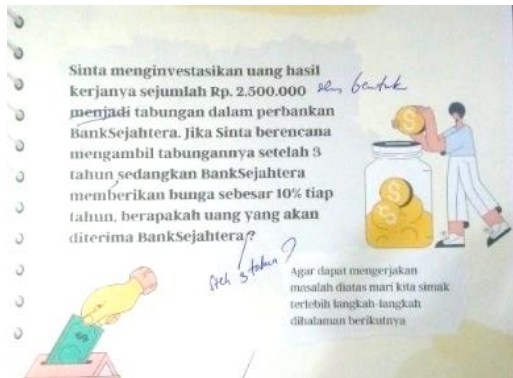 Sinta menginvestasikan uang hasil
kerjanya sejumlah Rp. 2.500.000 dlm bentuk
menjadi tabungan dalam perbankan
BankSejahtera. Jika Sinta berencana
mengambil tabungannya setelah 3
tahun sedangkan BankSejahtera
memberikan bunga sebesar 10% tiap
tahun, berapakah uang yang akan
diterima BankSejahtera?
stlh 3 tahun ?
Agar dapat mengerjakan
masalah diatas mari kita simak
terlebih langkah-langkah
dihalaman berikutnya